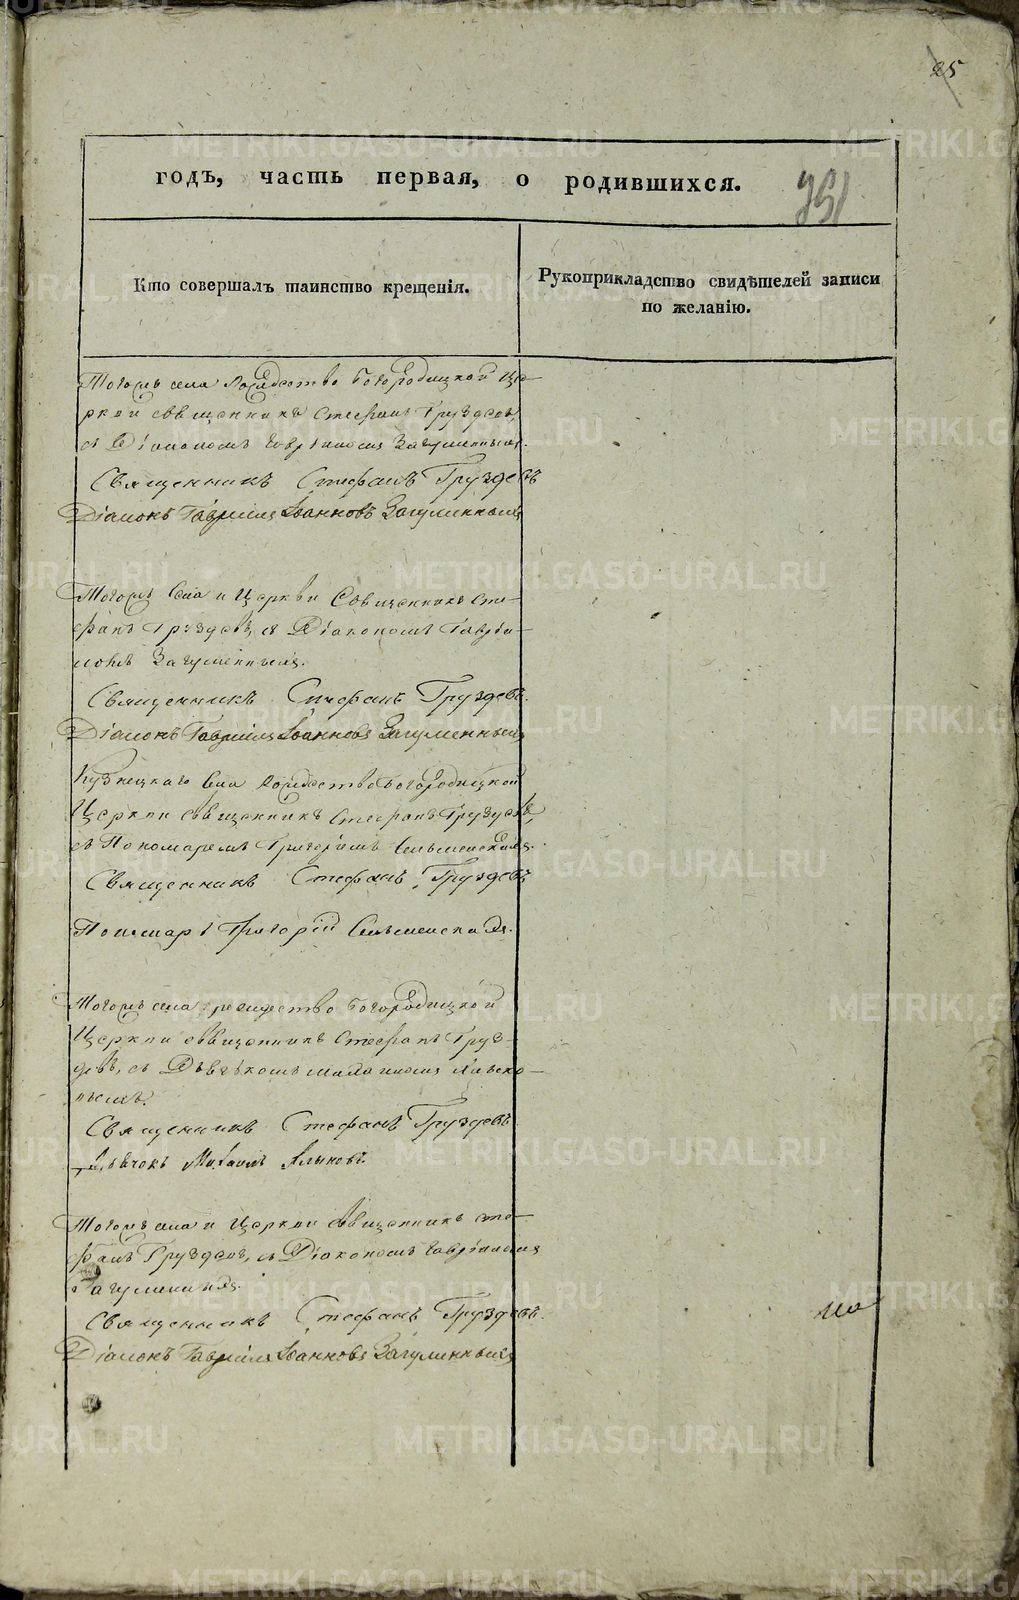 25
годъ, часть первая, о родившихся.
Кто совершалъ таинство крещенія.
Рукоприкладство свидѣтелей записи
по желанію.
Тогожъ села Рождество Богородицкой Це-
ркви священникъ Стефанъ Груздевъ,
съ Діакономъ Гавріиломъ Загуменныхъ.
Священникъ Стефанъ Груздевъ
Діаконъ Гавріилъ Іоанновъ Загуменныхъ
Тогожъ села и Церкви Священникъ Сте-
фанъ Груздевъ, съ Діакономъ Гаврі-
иломъ Загуменныхъ.
Священникъ Стефанъ Груздевъ.
Діаконъ Гавріилъ Іоанновъ Загуменныхъ
Кузнецкаго села Рождество Богородицкой
Церкви священникъ Стефанъ Груздевъ,
съ Пономаремъ Григоріемъ
Священникъ Стефанъ Груздевъ
Пономарь Григорій
Тогожъ села Рождество Богородицкой
Церкви священникъ Стефанъ Груз-
девъ, съ Дьячкомъ
Священникъ Стефанъ Груздевъ.
Дьячокъ
Тогожъ села и Церкви священникъ Сте-
фанъ Груздевъ, съ Діакономъ Гавріиломъ
Загуменныхъ.
Священникъ Стефанъ Груздевъ.
Діаконъ Гавріилъ Іоанновъ Загуменныхъ
METRIKI.GASO-URAL.RU